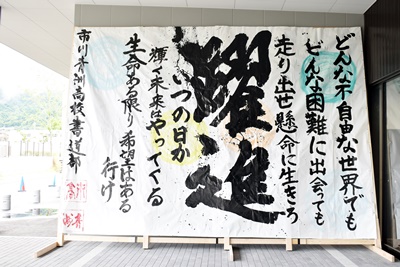 どんな不自由な世界でも
どんな困難に出会っても
走り出せ懸命に生きろ
躍進
いつの日か
輝く未来はやってくる
生命ある限り希望はある
行け
市川南洲高校書道部